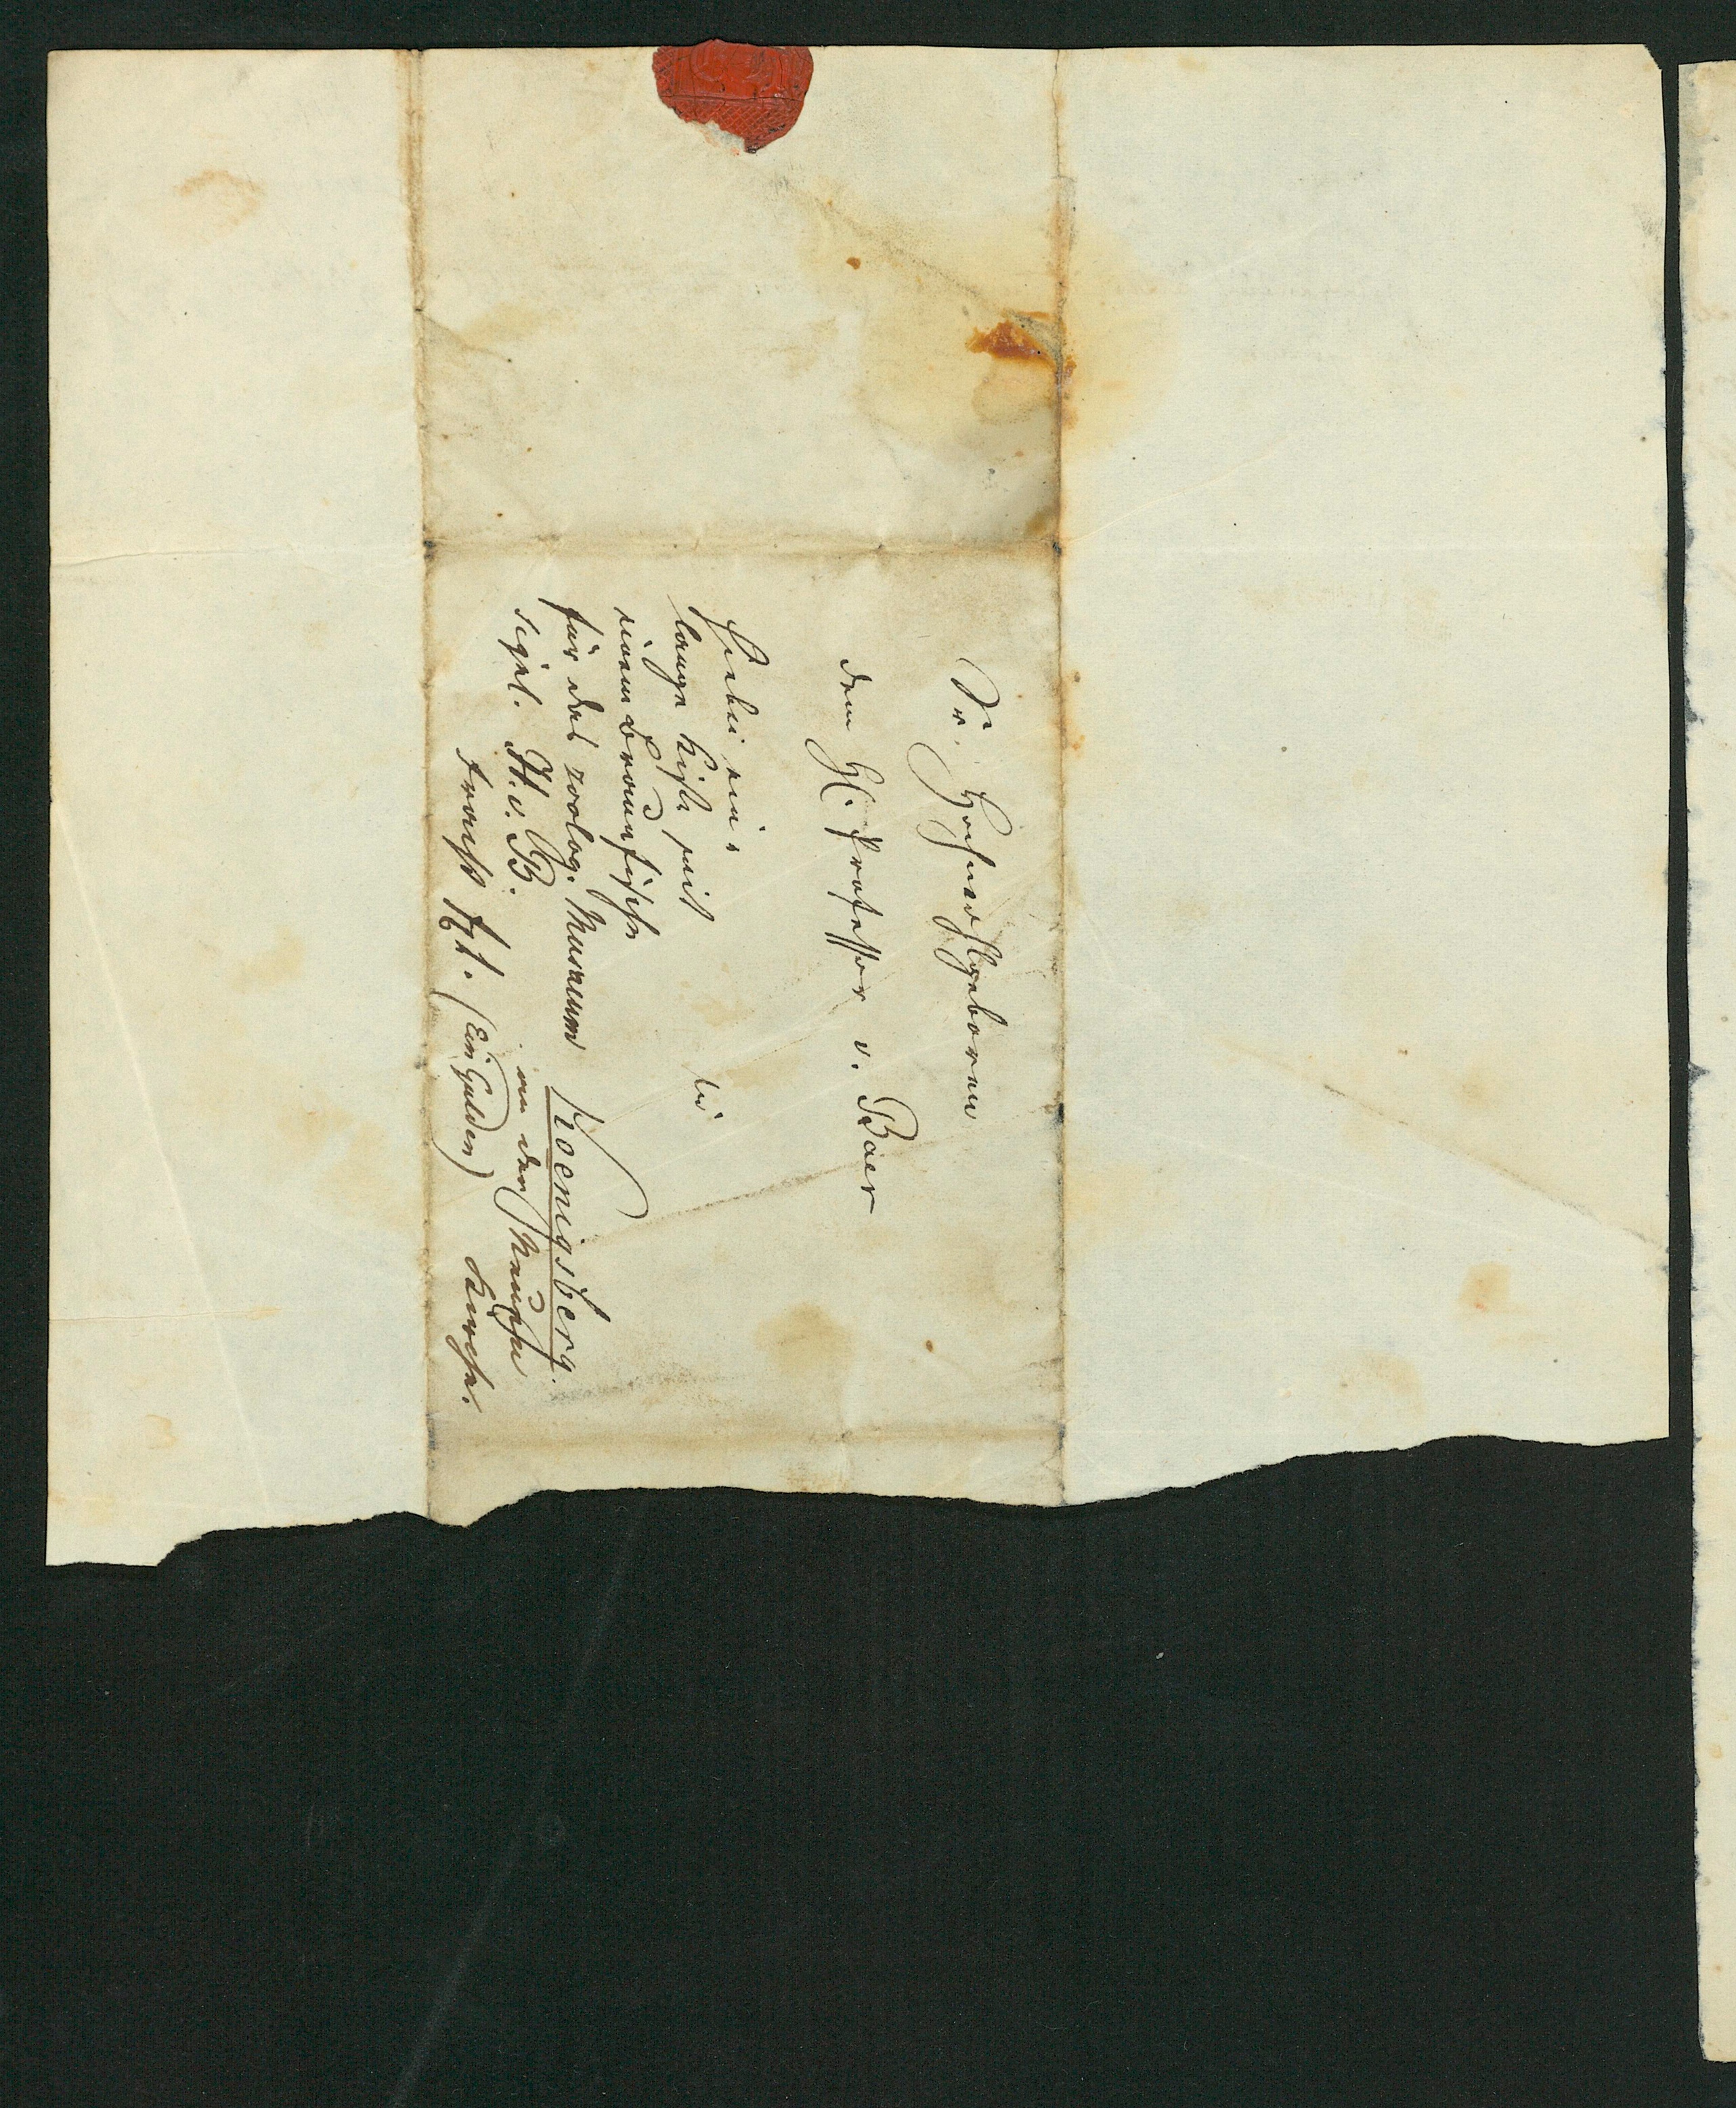 Sr. Hochwohlgeboren
dem H. Professor v. Baer
Hiebei eine
lange Kiste mit
einem Braunfische
für das zoolog. Museum
sigel. H. v. B.
Fracht f 1. (Ein Gulden)
in
Koenigsberg.
an der
Kirche.